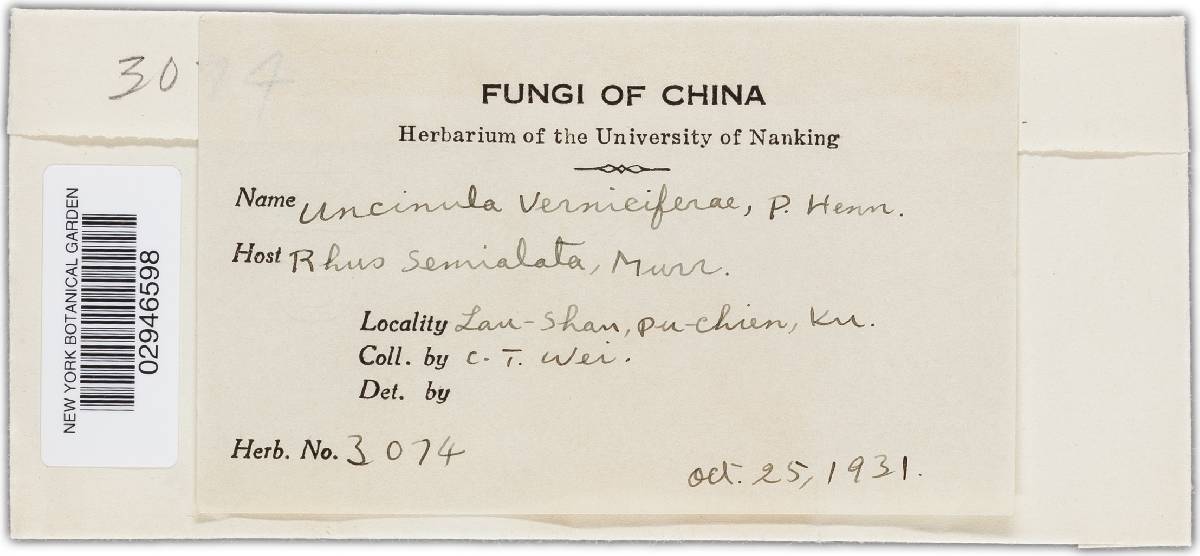 3074
FUNGI OF CHINA
Herbarium of the University of Nanking
Name Uncinula Verniciferae, P. Henn.
Host Rhus Semialata, Murr.
Locality Lau-Shan, pu-chien, Ku.
Coll. by C. T. Wei.
Det. by
Herb. No. 3074
Oct. 25, 1931.
NEW YORK BOTANICAL GARDEN
02946598